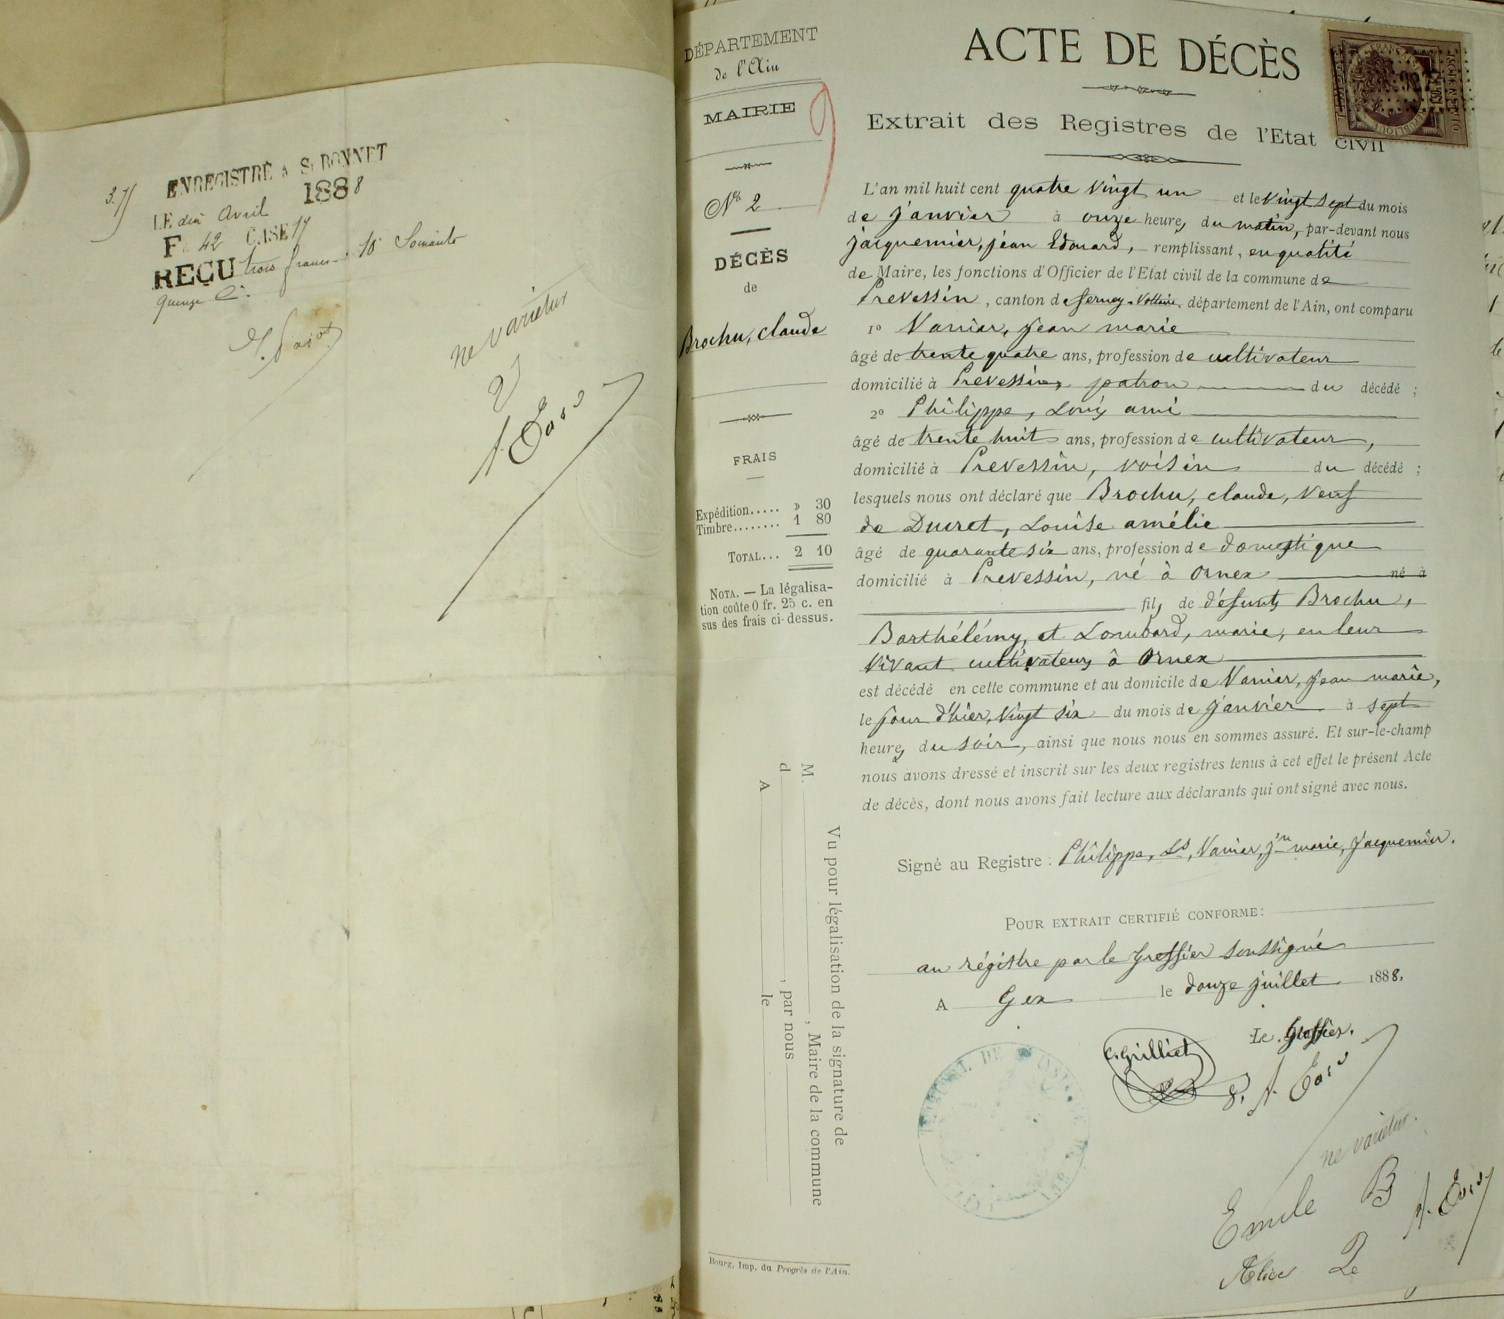 3.7/
ENREGISTRÉ A St BONNET
LE dix Avril 1888
F° 42 CASE 17
REÇU trois francs Soixante
quinze c.
ne varietur
DÉPARTEMENT
de l'Ain
MAIRIE
N° 2
DÉCÈS
de
Brochu, claude
FRAIS
Expédition..... » 30
Timbre........ 1 80
TOTAL... 2 10
NOTA. — La légalisa-
tion coûte 0 fr. 25 c. en
sus des frais ci-dessus.
Vu pour légalisation de la signature de
M. , Maire de la commune
d , par nous
A le
Bourg, Imp. du Progrès de l'Ain.
ACTE DE DÉCÈS
Extrait des Registres de l'Etat civil
L'an mil huit cent quatre vingt un et le vingt sept du mois
de janvier à onze heures du matin, par-devant nous
jacquemier, jean Edouard, remplissant, en qualité
de Maire, les fonctions d'Officier de l'Etat civil de la commune de
Prevessin, canton de ferney-Voltaire, département de l'Ain, ont comparu
1° Vanier, jean marie
âgé de trente quatre ans, profession de cultivateur
domicilié à Prevessin, patron du décédé ;
2° Philippe, Louis ami
âgé de trente huit ans, profession de cultivateur,
domicilié à Prevessin, voisin du décédé ;
lesquels nous ont déclaré que Brochu, claude, veuf
de Ducret, Louise amélie
âgé de quarante six ans, profession de domestique
domicilié à Prevessin, né à Ornex né à
fils de défunts Brochu,
Barthélémy, et Lombard, marie, en leur
vivant cultivateurs à Ornex
est décédé en cette commune et au domicile de Vanier, jean marie,
le jour d'hier, vingt six du mois de janvier à sept
heures du soir, ainsi que nous nous en sommes assuré. Et sur-le-champ
nous avons dressé et inscrit sur les deux registres tenus à cet effet le présent Acte
de décès, dont nous avons fait lecture aux déclarants qui ont signé avec nous.
Signé au Registre : Philippe, Ls, Vanier, jn marie, jacquemier.
POUR EXTRAIT CERTIFIÉ CONFORME:
au régistre par le greffier soussigné
A Gex le douze juillet 1888.
Le Greffier.
C. Grilliet
ne varietur.
Emile B